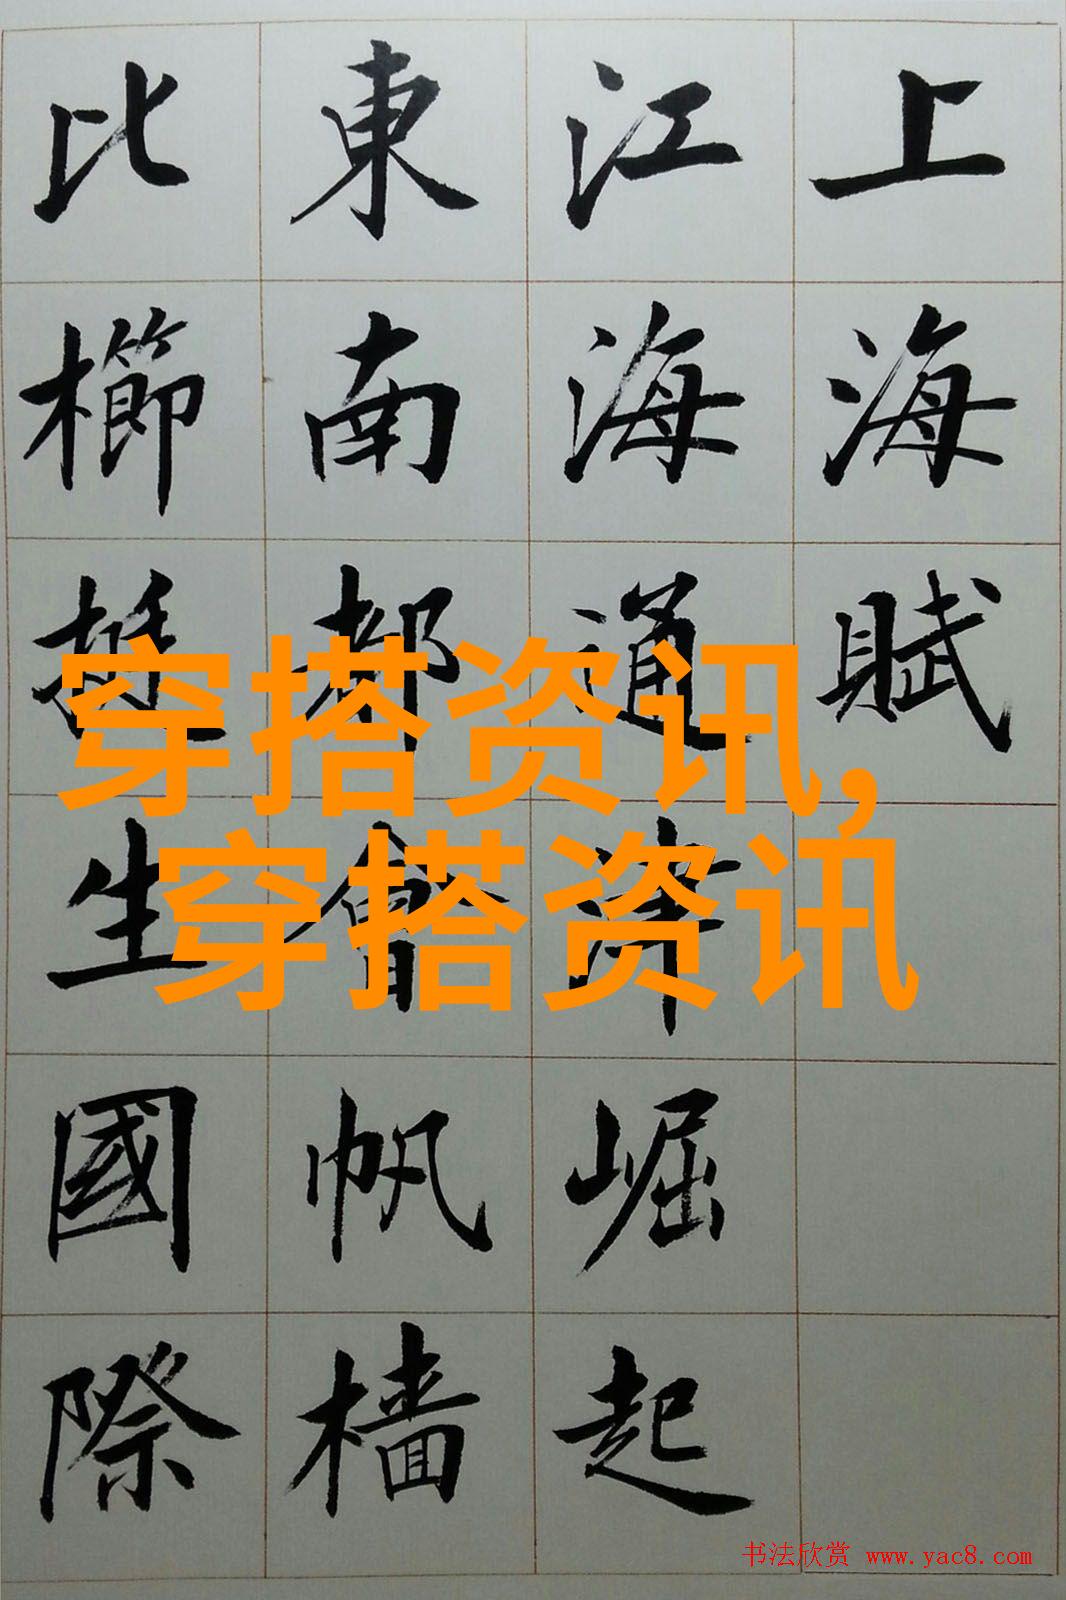 上海賦
江海通津崛起
東南都會帆樯
比櫛挺生國際
穿搭资讯,
穿搭资讯
书法欣赏 www.yac8.com